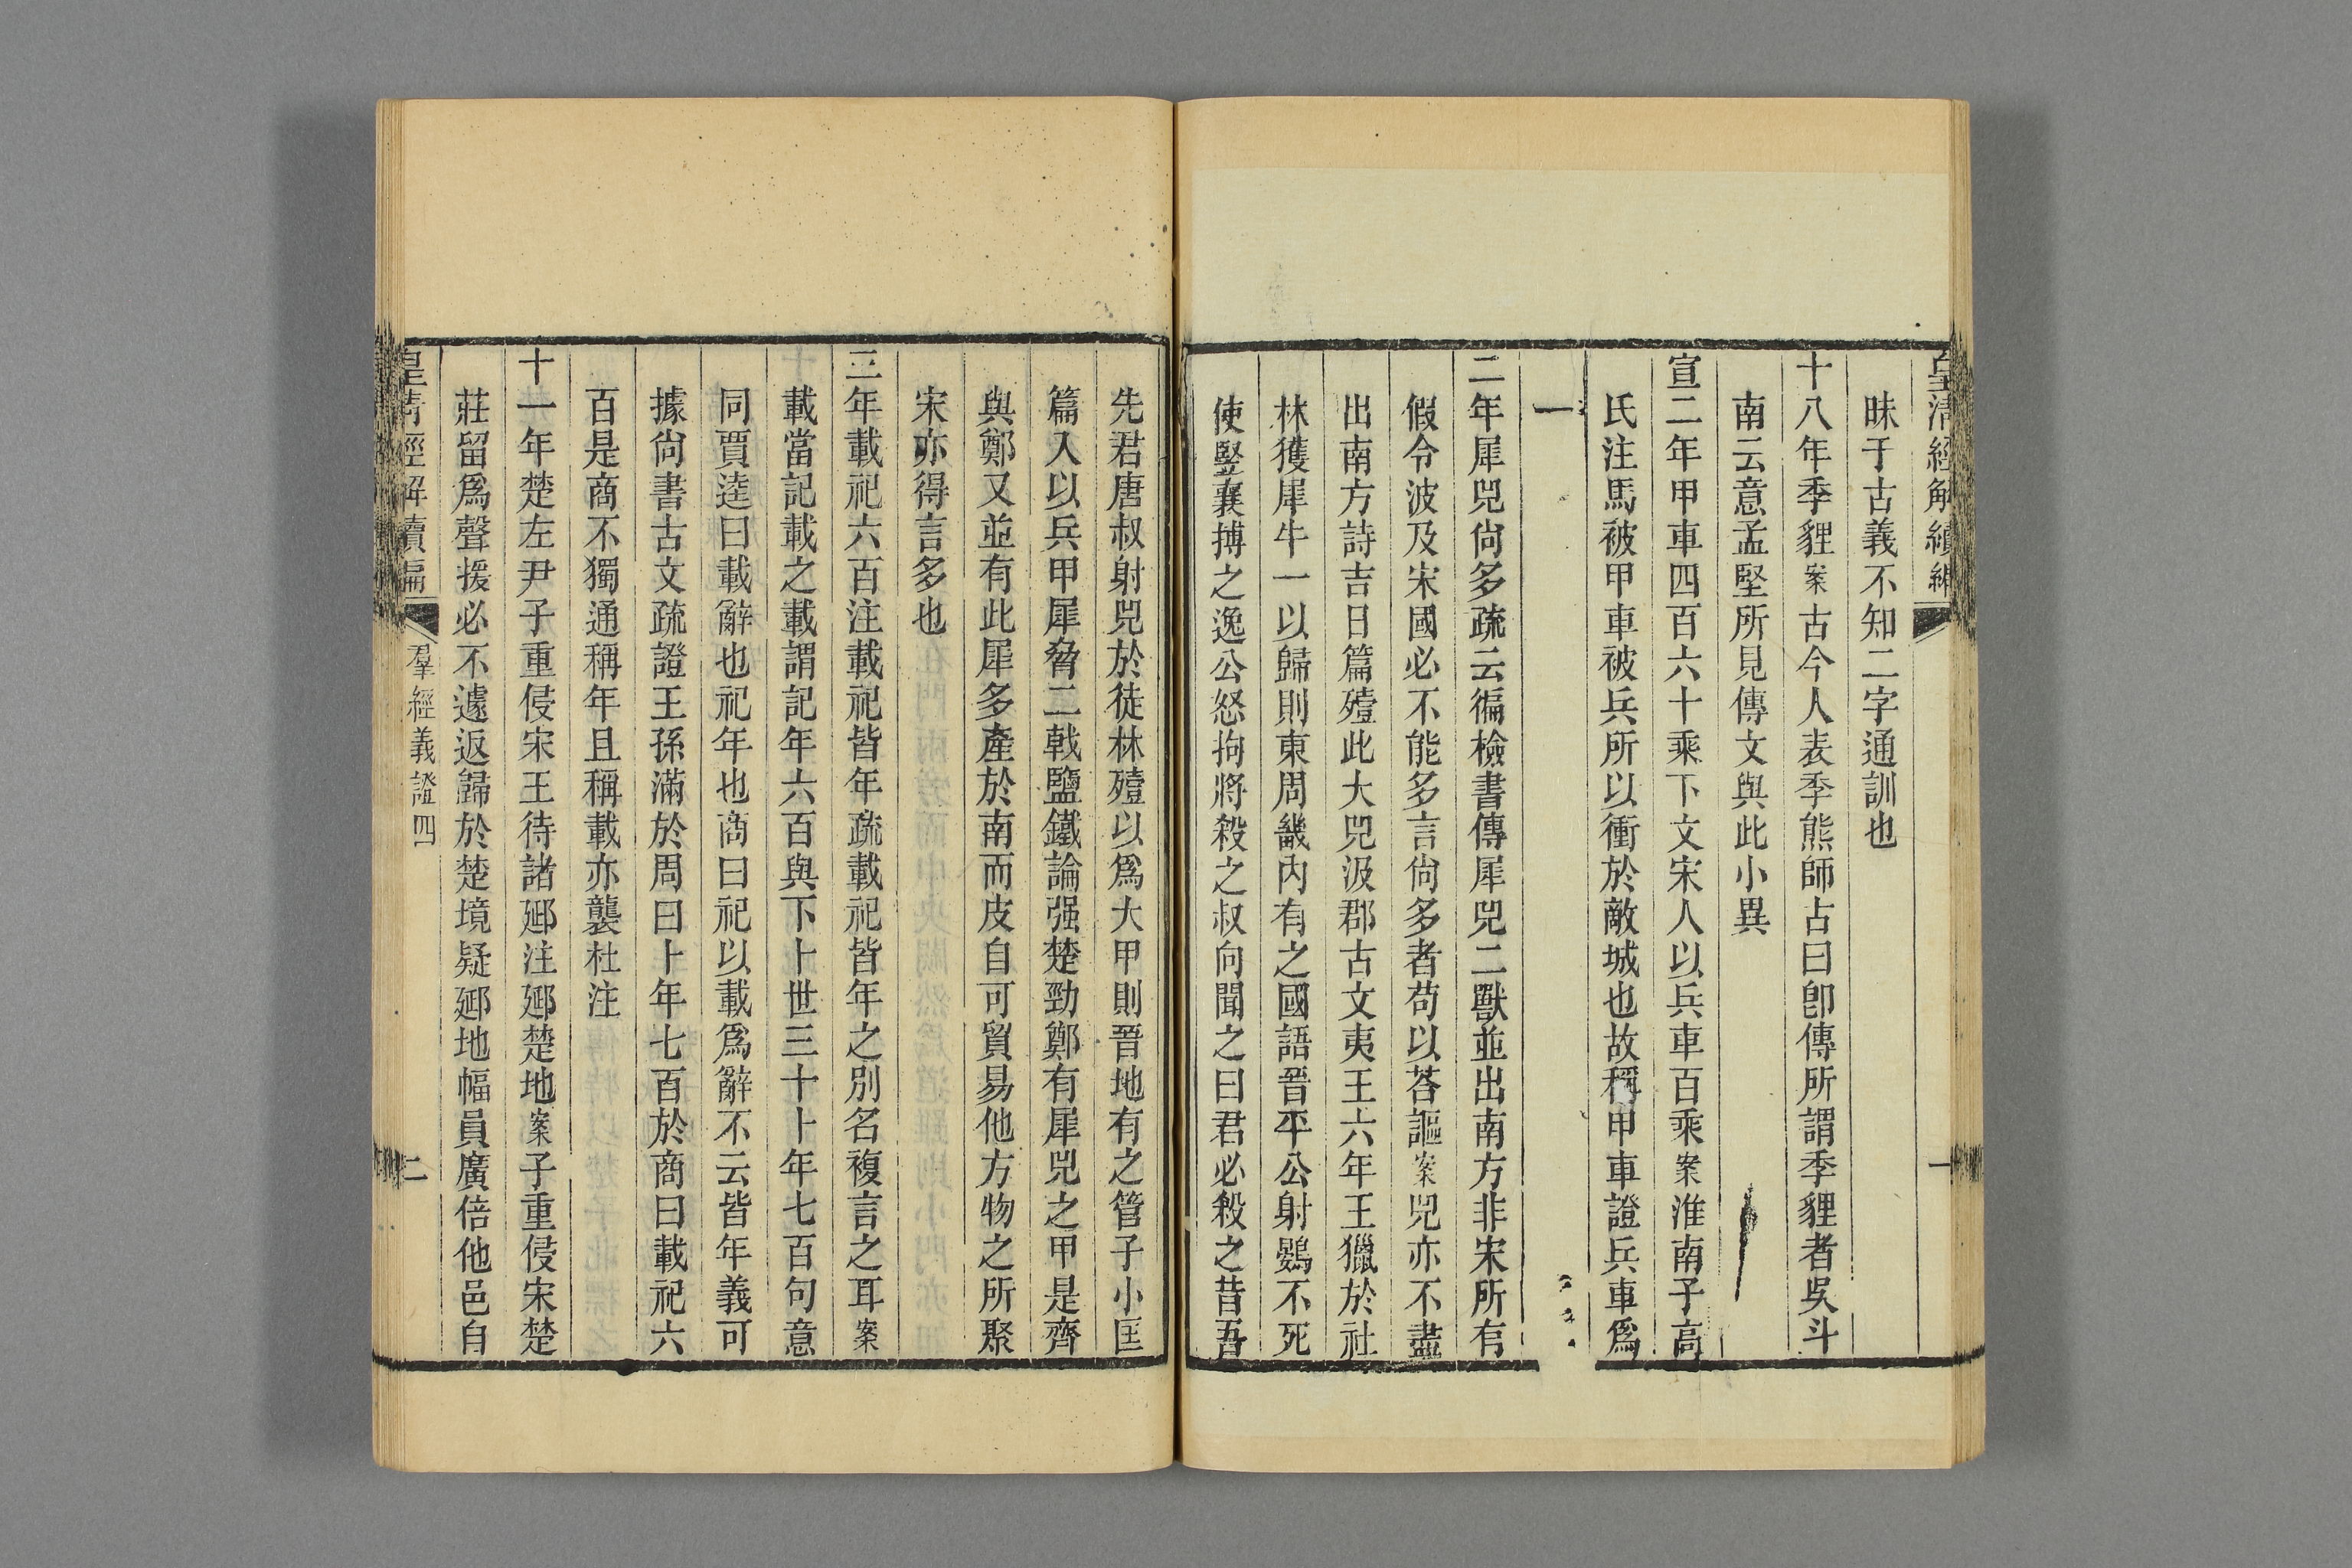 皇清經解續編
一
昧于古義不知二字通訓也
十八年季貍案古今人表季熊師古曰卽傳所謂季貍者吳斗
南云意孟堅所見傳文與此小異
宣二年甲車四百六十乘下文宋人以兵車百乘案淮南子高
氏注馬被甲車被兵所以衝於敵城也故稱甲車證兵車爲
一
二年犀兕尙多疏云徧檢書傳犀兕二獸並出南方非宋所有
假令波及宋國必不能多言尙多者苟以荅謳案兕亦不盡
出南方詩吉日篇殪此大兕汲郡古文夷王六年王獵於社
林獲犀牛一以歸則東周畿內有之國語晉平公射鷃不死
使豎襄搏之逸公怒拘將殺之叔向聞之曰君必殺之昔吾
先君唐叔射兕於徒林殪以爲大甲則晉地有之管子小匡
篇入以兵甲犀脅二戟鹽鐵論强楚勁鄭有犀兕之甲是齊
與鄭又並有此犀多產於南而皮自可貿易他方物之所聚
宋亦得言多也
三年載祀六百注載祀皆年疏載祀皆年之別名複言之耳案
載當記載之載謂記年六百與下卜世三十卜年七百句意
同賈逵曰載辭也祀年也商曰祀以載爲辭不云皆年義可
據尙書古文疏證王孫滿於周曰卜年七百於商曰載祀六
百是商不獨通稱年且稱載亦襲杜注
十一年楚左尹子重侵宋王待諸郔注郔楚地案子重侵宋楚
莊留爲聲援必不遽返歸於楚境疑郔地幅員廣倍他邑自
皇清經解續編
羣經義證四
二